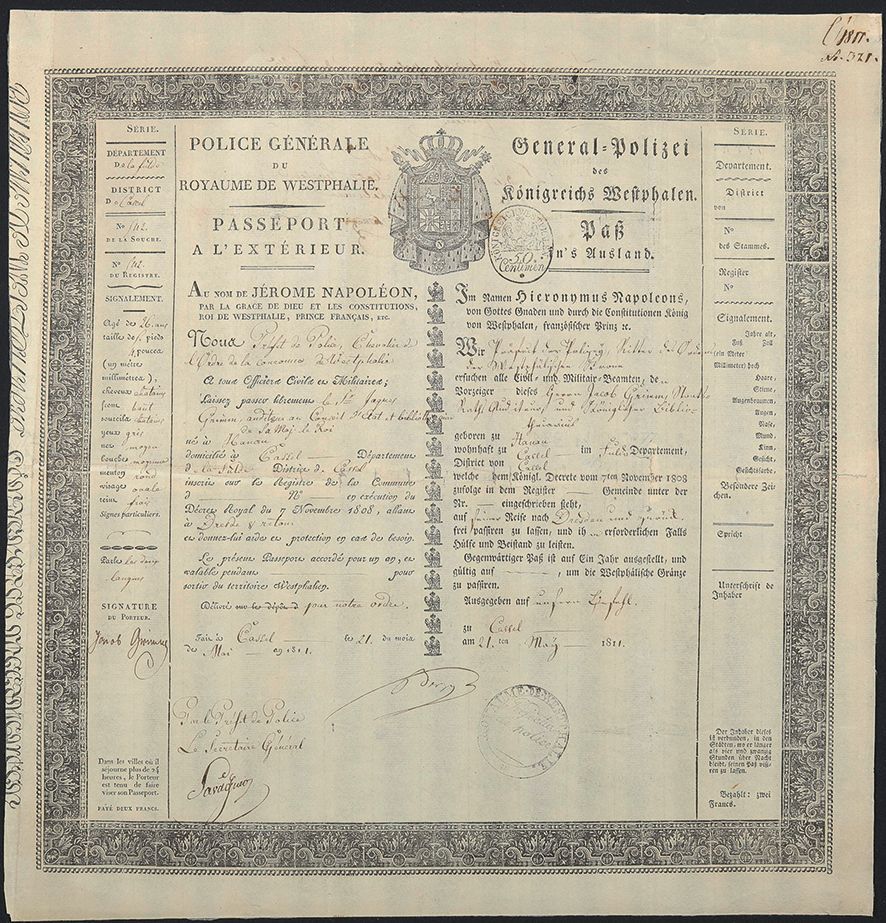 1811.
No. 321.
SÉRIE.
DÉPARTEMENT
De la fulde
DISTRICT
De Cassel
No 142
DE LA SOUCHE.
No 142
DU REGISTRE.
SIGNALEMENT.
Agé de 26 ans
taille de 5 pieds
4 pouces
(un mètre
millimètres);
cheveux chatains
front haut
sourcils chatains
yeux gris
nez moyen
bouche moyenne
menton rond
visage ovale
teint
Signes particuliers.
Parle les deux
langues
SIGNATURE
DU PORTEUR.
Jacob Grimm
Dans les villes où il
séjourne plus de 24
heures, le Porteur
est tenu de faire
viser son Passeport.
PAYÉ DEUX FRANCS.
POLICE GÉNÉRALE
DU
ROYAUME DE WESTPHALIE.
PASSEPORT
A L'EXTÉRIEUR.
AU NOM DE JÉROME NAPOLÉON,
PAR LA GRACE DE DIEU ET LES CONSTITUTIONS,
ROI DE WESTPHALIE, PRINCE FRANÇAIS, ETC.
Nous Préfet de Police, Chevalier de
l'Ordre de la Couronne de Westphalie
A tous Officiers Civils et Militaires;
Laissez passer librement le Sr. Jaques
Grimm, auditeur au Conseil d'Etat & bibliothécaire
de Sa Maj. le Roi
né à Hanau
domicilié à Cassel Département
d la fulde District de Cassel
inscrit sur le Registre de la Commune
d No en exécution du
Décret Royal du 7 Novembre 1808, allant
à Dresde & retour
et donnez-lui aide et protection en cas de besoin.
Le présent Passeport accordé pour un an, est
valable pendant pour
sortir du territoire Westphalien.
Délivré sur le dépôt d par notre ordre.
Fait à Cassel le 21. du mois
de Mai an 1811.
Par le Préfet de Police
Le Secrétaire Général
General-Polizei
des
Königreichs Westphalen.
Paß
in's Ausland.
50.
Centimen
Im Namen Hieronymus Napoleons,
von Gottes Gnaden und durch die Constitutionen König
von Westphalen, französischer Prinz ꝛc.
Wir Praefect der Polizey, Ritter des Ordens
der Westphälischen Krone
ersuchen alle Civil- und Militair-Beamten, den
Vorzeiger dieses Herrn Jacob Grimm, Staats
Rath, Auditeur, und Königlicher Biblio-
thecarius
geboren zu Hanau
wohnhaft zu Cassel im Fuld Departement,
District von Cassel
welche dem Königl. Decrete vom 7ten November 1808
zufolge in dem Register Gemeinde unter der
Nr. eingeschrieben steht,
auf seiner Reise nach Dresden und zurück
frei passiren zu lassen, und ih erforderlichen Falls
Hülfe und Beistand zu leisten.
Gegenwärtiger Paß ist auf Ein Jahr ausgestellt, und
gültig auf , um die Westphälische Gränze
zu passiren.
Ausgegeben auf unsern Befehl.
zu Cassel
am 21. ten May 1811.
SÉRIE.
Departement.
District
von
No
des Stammes.
Register
No
Signalement.
Jahre alt,
Fuß Zoll
(ein Meter
Millimeter) hoch
Haare,
Stirne,
Augenbraunen,
Augen,
Nase,
Mund,
Kinn,
Gesicht,
Gesichtsfarbe.
Besondere Zei-
chen.
Spricht
Unterschrift des
Inhaber
Der Inhaber dieses
ist verbunden, in den
Städten, wo er länger
als vier und zwanzig
Stunden über Nacht
bleibt, seinen Paß visi-
ren zu lassen.
Bezahlt: zwei
Francs.